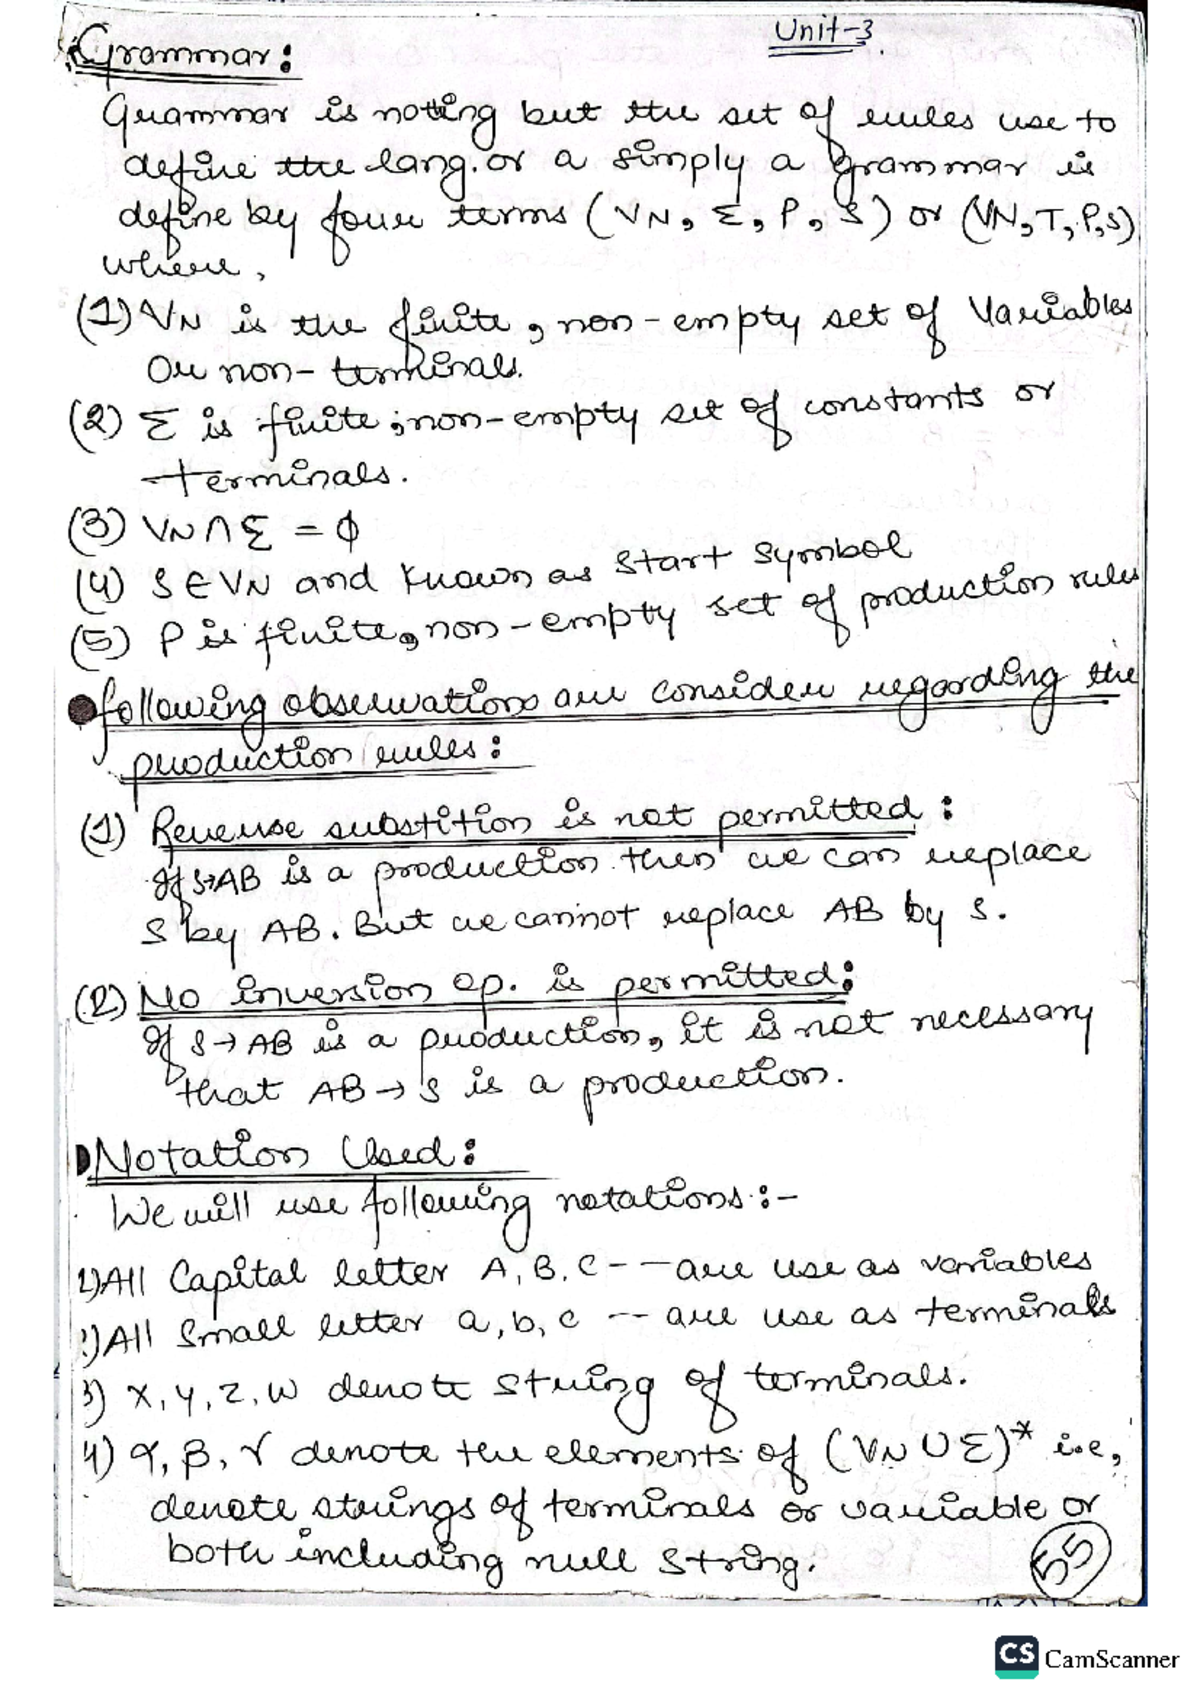 Unit-3
Grammar:
Grammar is notting but the set of rules use to
define the lang. or a simply a grammar is
define by four terms (VN, Σ, P, S) or (VN, T, P, S)
where,
(1) VN is the finite, non-empty set of Variables
Or non-terminals.
(2) Σ is finite, non-empty set of constants or
terminals.
(3) VN ∩ Σ = ϕ
(4) S ∈ VN and known as start symbol
(5) P is finite, non-empty set of production rules
following observations are consider regarding the
production rules:
(1) Reverse substition is not permitted:
If S→AB is a production then we can replace
S by AB. But we cannot replace AB by S.
(2) No inversion op. is permitted:
If S→AB is a production, it is not necessary
that AB→S is a production.
Notation Used:
We will use following notations:-
1) All Capital letter A, B, C -- are use as variables
2) All Small letter a, b, c -- are use as terminals
3) x, y, z, w denote string of terminals.
4) α, β, γ denote the elements of (VN ∪ Σ)* i.e,
denote strings of terminals or variable or
both including null string.
55
CS CamScanner